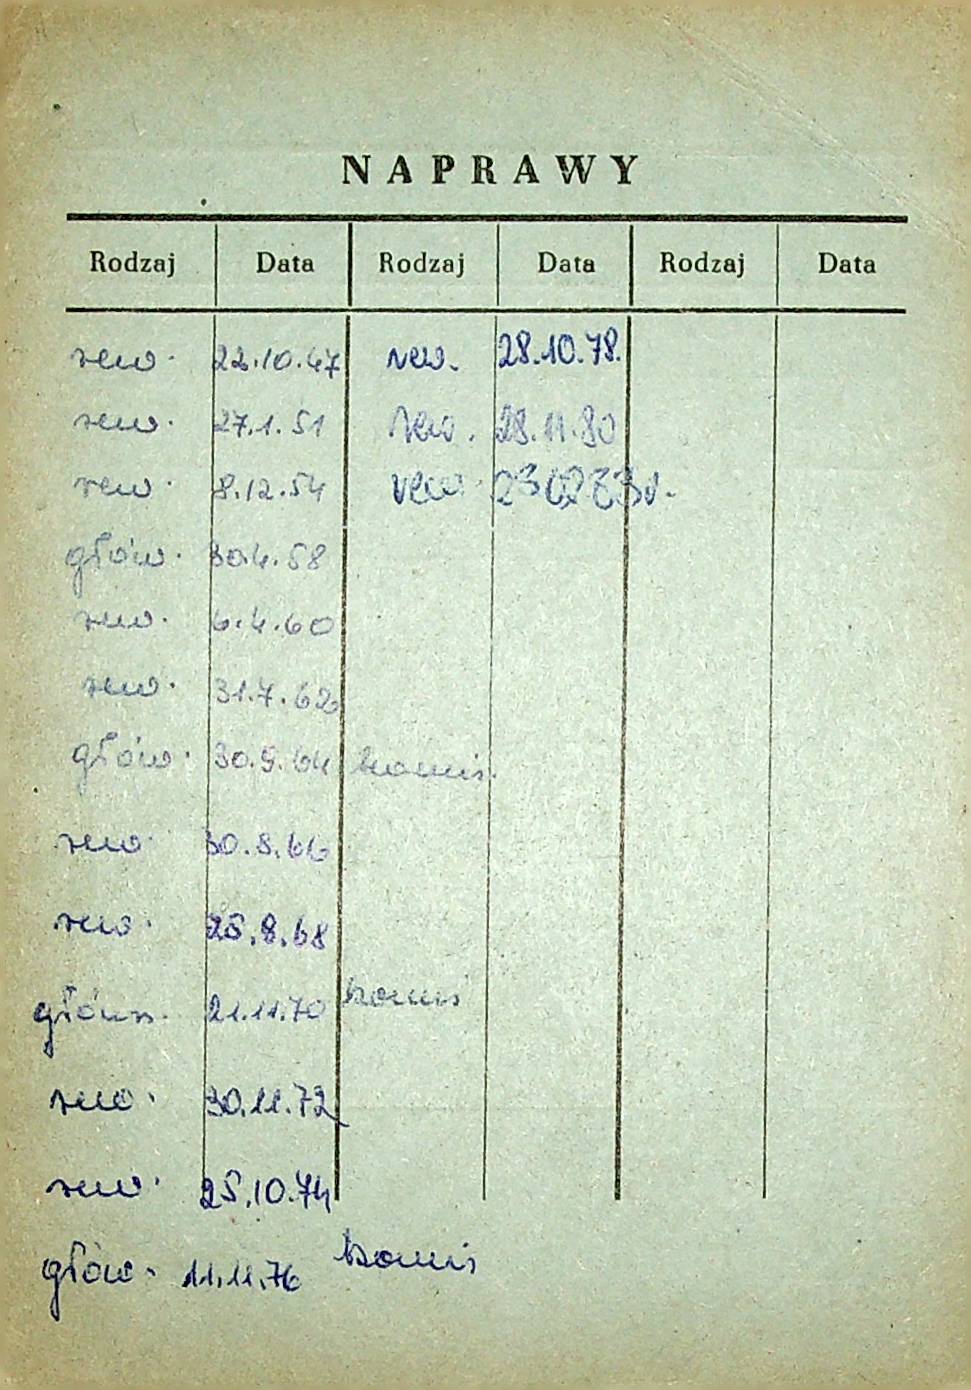 NAPRAWY
Rodzaj Data Rodzaj Data Rodzaj Data
rew. 22.10.47 rew. 28.10.78.
rew. 27.1.51 rew. 28.11.80
rew. 8.12.54 rew. 23 02 83 r.
głów. 30.4.58
rew. 6.4.60
rew. 31.7.62
głów. 30.9.64 komis.
rew. 30.8.66
rew. 25.8.68
główn. 21.11.70 komis
rew. 30.11.72
rew. 25.10.74
głów. 11.11.76 komis